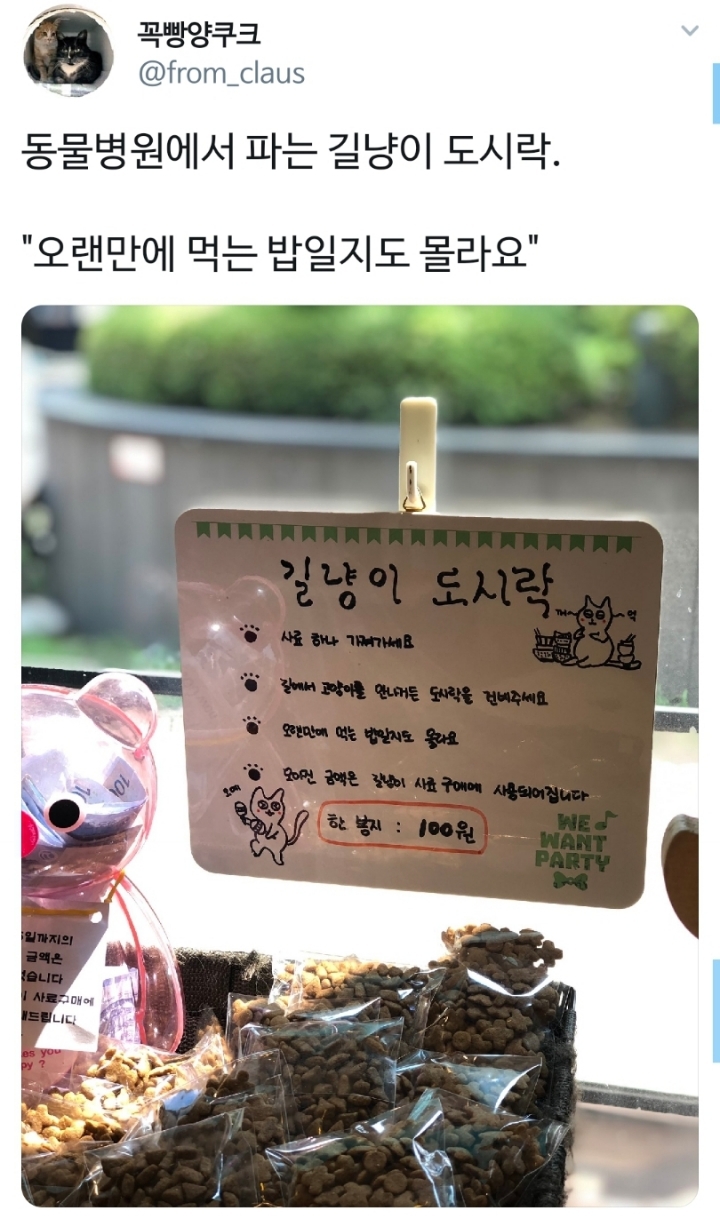 꼭빵양쿠크
@from_claus
동물병원에서 파는 길냥이 도시락.
"오랜만에 먹는 밥일지도 몰라요"
길냥이 도시락
사료 하나 가져가세요
길에서 고양이를 만나거든 도시락을 건네주세요
오랜만에 먹는 밥일지도 몰라요
모아진 금액은 길냥이 사료 구매에 사용되어집니다
한 봉지 : 100원
WE
WANT
PARTY
일까지의
금액은
습니다
사료구매에
드립니다
es you
py ?